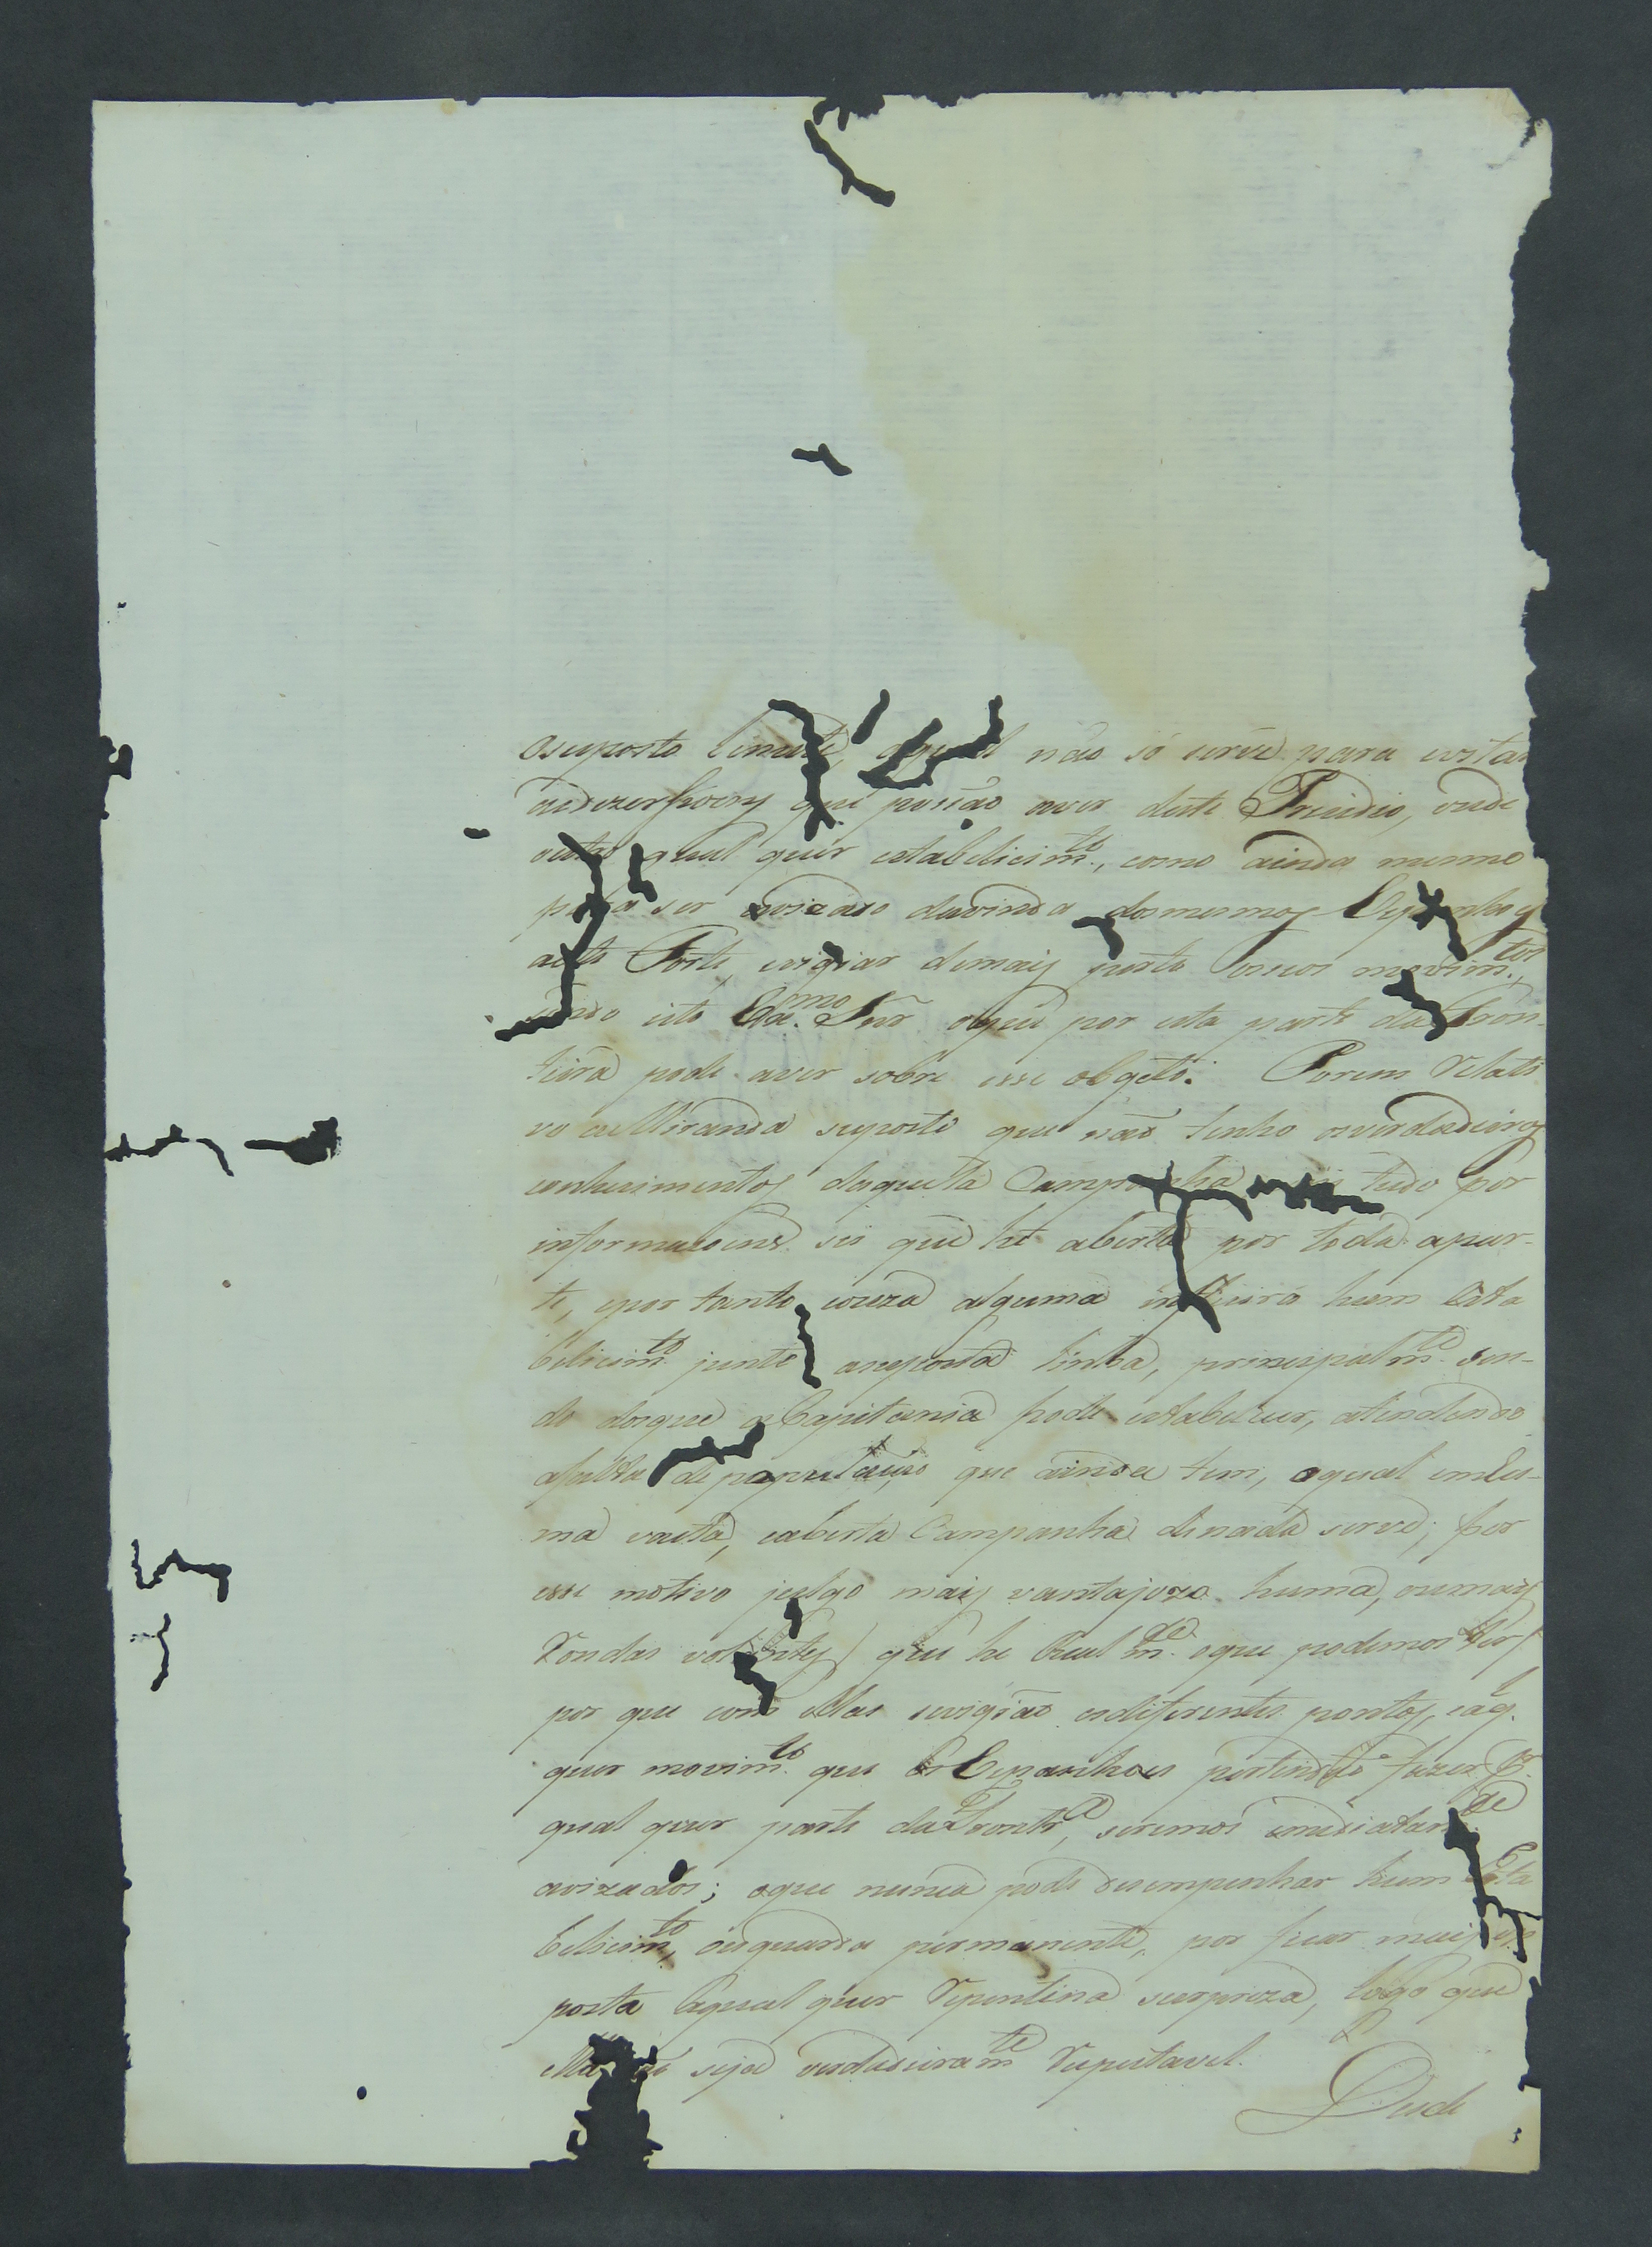 osuposto limite, aqual não só serve para evitar
as dezerssoens que possão aver deste Prezidio, ou de
outro qual quer estabelicim.to, como ainda mesmo
para ser avizado da vinda dos mesmos Espanhoes
aeste Forte, evigiar demais perto osseos movim.tos,
sendo isto Ex.mo Snr oque por esta parte da Fron-
teira pode aver sobre esse objeto. Porem Relati
vo aMiranda suposto que não tenho overdadeiros
conhecimentos daquela Campanha tudo por
informasoens sei que he aberta por toda apar-
te, epor tanto couza alguma influirá hum Esta
belicim.to junto asuposta linha, principalm.te sen-
do dosque aCapitania pode estabelecer, atendendo
afalta depopulação que ainda tem, oqual emhu-
ma vasta, eaberta Campanha denada serve; por
esse motivo julgo mais vantajozo huma, oumais
Rondas volantes / que he Realm.te oque podemos ter /
por que com ellas sevigião osdiferentes pontos, eaq.l
quer movim.to que os Espanhoes pertendão fazer p.r
qual quer parte daFrontr.a, seremos imediatam.te
avizados; oque nunca pode desempenhar hum Esta
belicim.to, ouguarda permanente, por ficar mais ex
posta aqual quer Repentina surpreza, logo que
ella não seja verdadeiram.te Respeitavel.
Desde